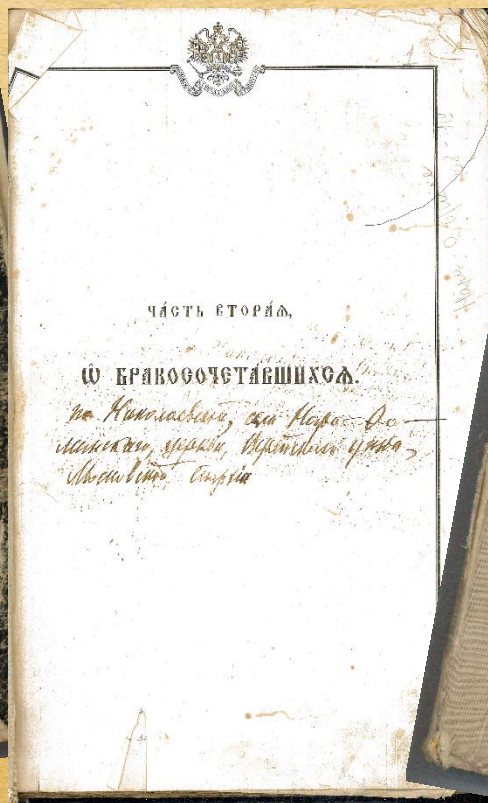 ЧА́СТЬ ВТОРА́Я,
Ѡ҆ БРАКОСОЧЕТА́ВШИХСѦ.
по Николаевской, села Наро-Фо-
минскаго, церкви, Верейскаго уезда,
Московской Епархіи